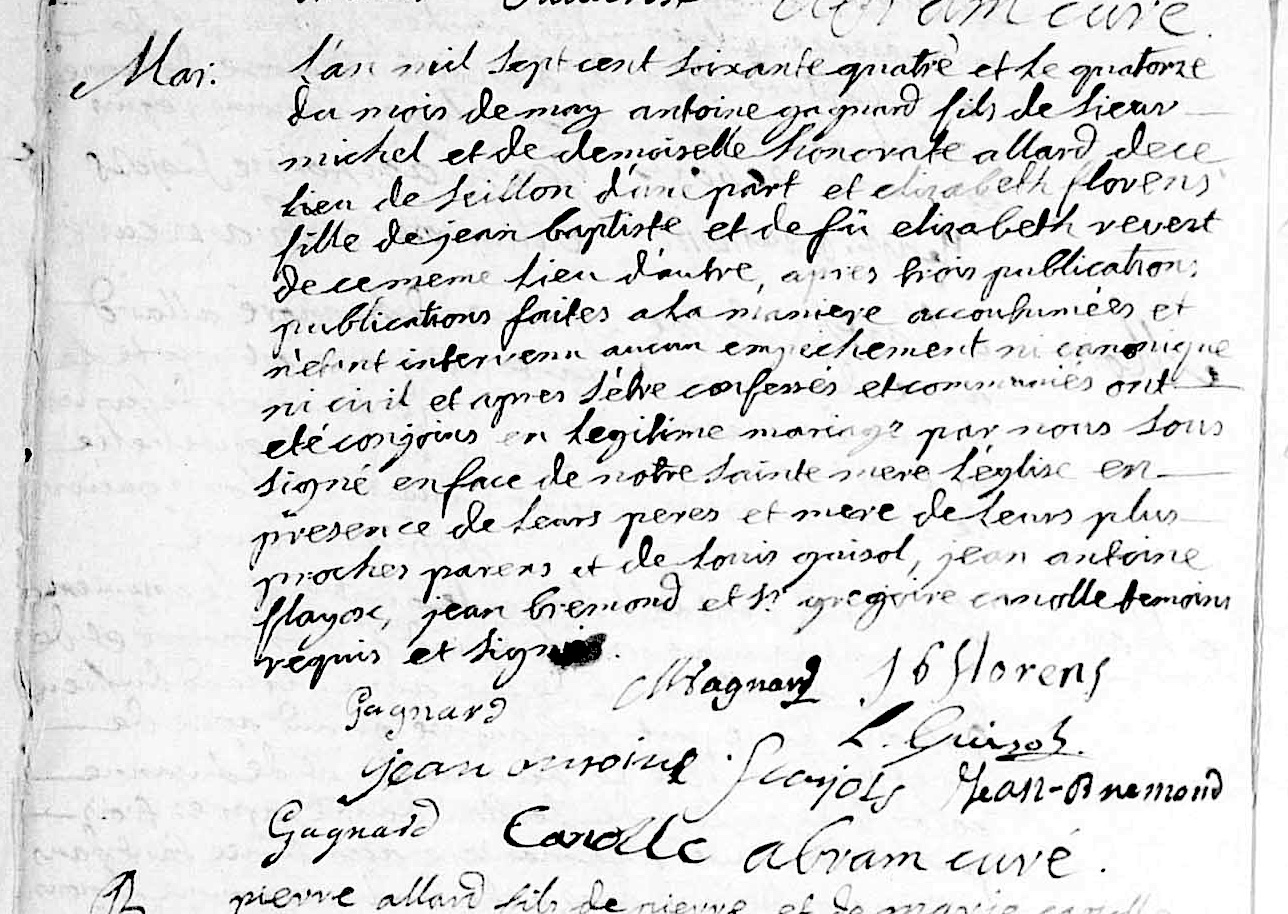 abram curé.
Mar: L'an mil sept cent soixante quatre et le quatorze
du mois de may antoine gagnard fils de sieur
michel et de demoiselle honorate allard de ce
lieu de seillon d'une part et elizabeth florens
fille de jean baptiste et de fû elizabeth revert
de ce meme lieu d'autre, apres trois publications
publications faites a la maniere accoutumées et
n'étant intervenu aucun empechement ni canonique
ni civil et apres s'être confessés et communiés ont
été conjoins en legitime mariage par nous sous
signé en face de notre sainte mere l'église en
presence de leurs peres et mere de leurs plus
proches parens et de louis guisol, jean antoine
flayox, jean bremond et sr gregoire canolle temoins
requis et signés.
Gagnard MGagnard J b florens
L. Guisol.
jean antoine flayols Jean-Bremond
Gagnard Canolle abram curé.
B pierre allard fils de pierre et de marie canolle